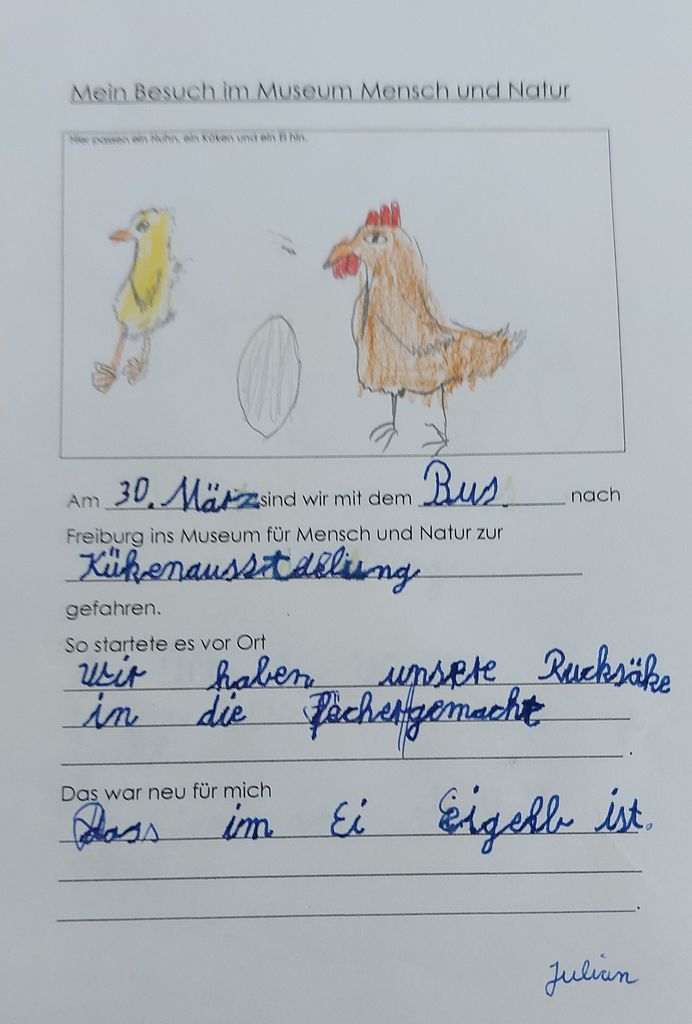 Mein Besuch im Museum Mensch und Natur
Hier passen ein Huhn, ein Küken und ein Ei hin.
Am 30. März sind wir mit dem Bus. nach
Freiburg ins Museum für Mensch und Natur zur
Kükenausstdelung
gefahren.
So startete es vor Ort
Wir haben unsere Rucksäke
in die Fächer gemacht
.
Das war neu für mich
Dass im Ei Eigelb ist.
.
Julian